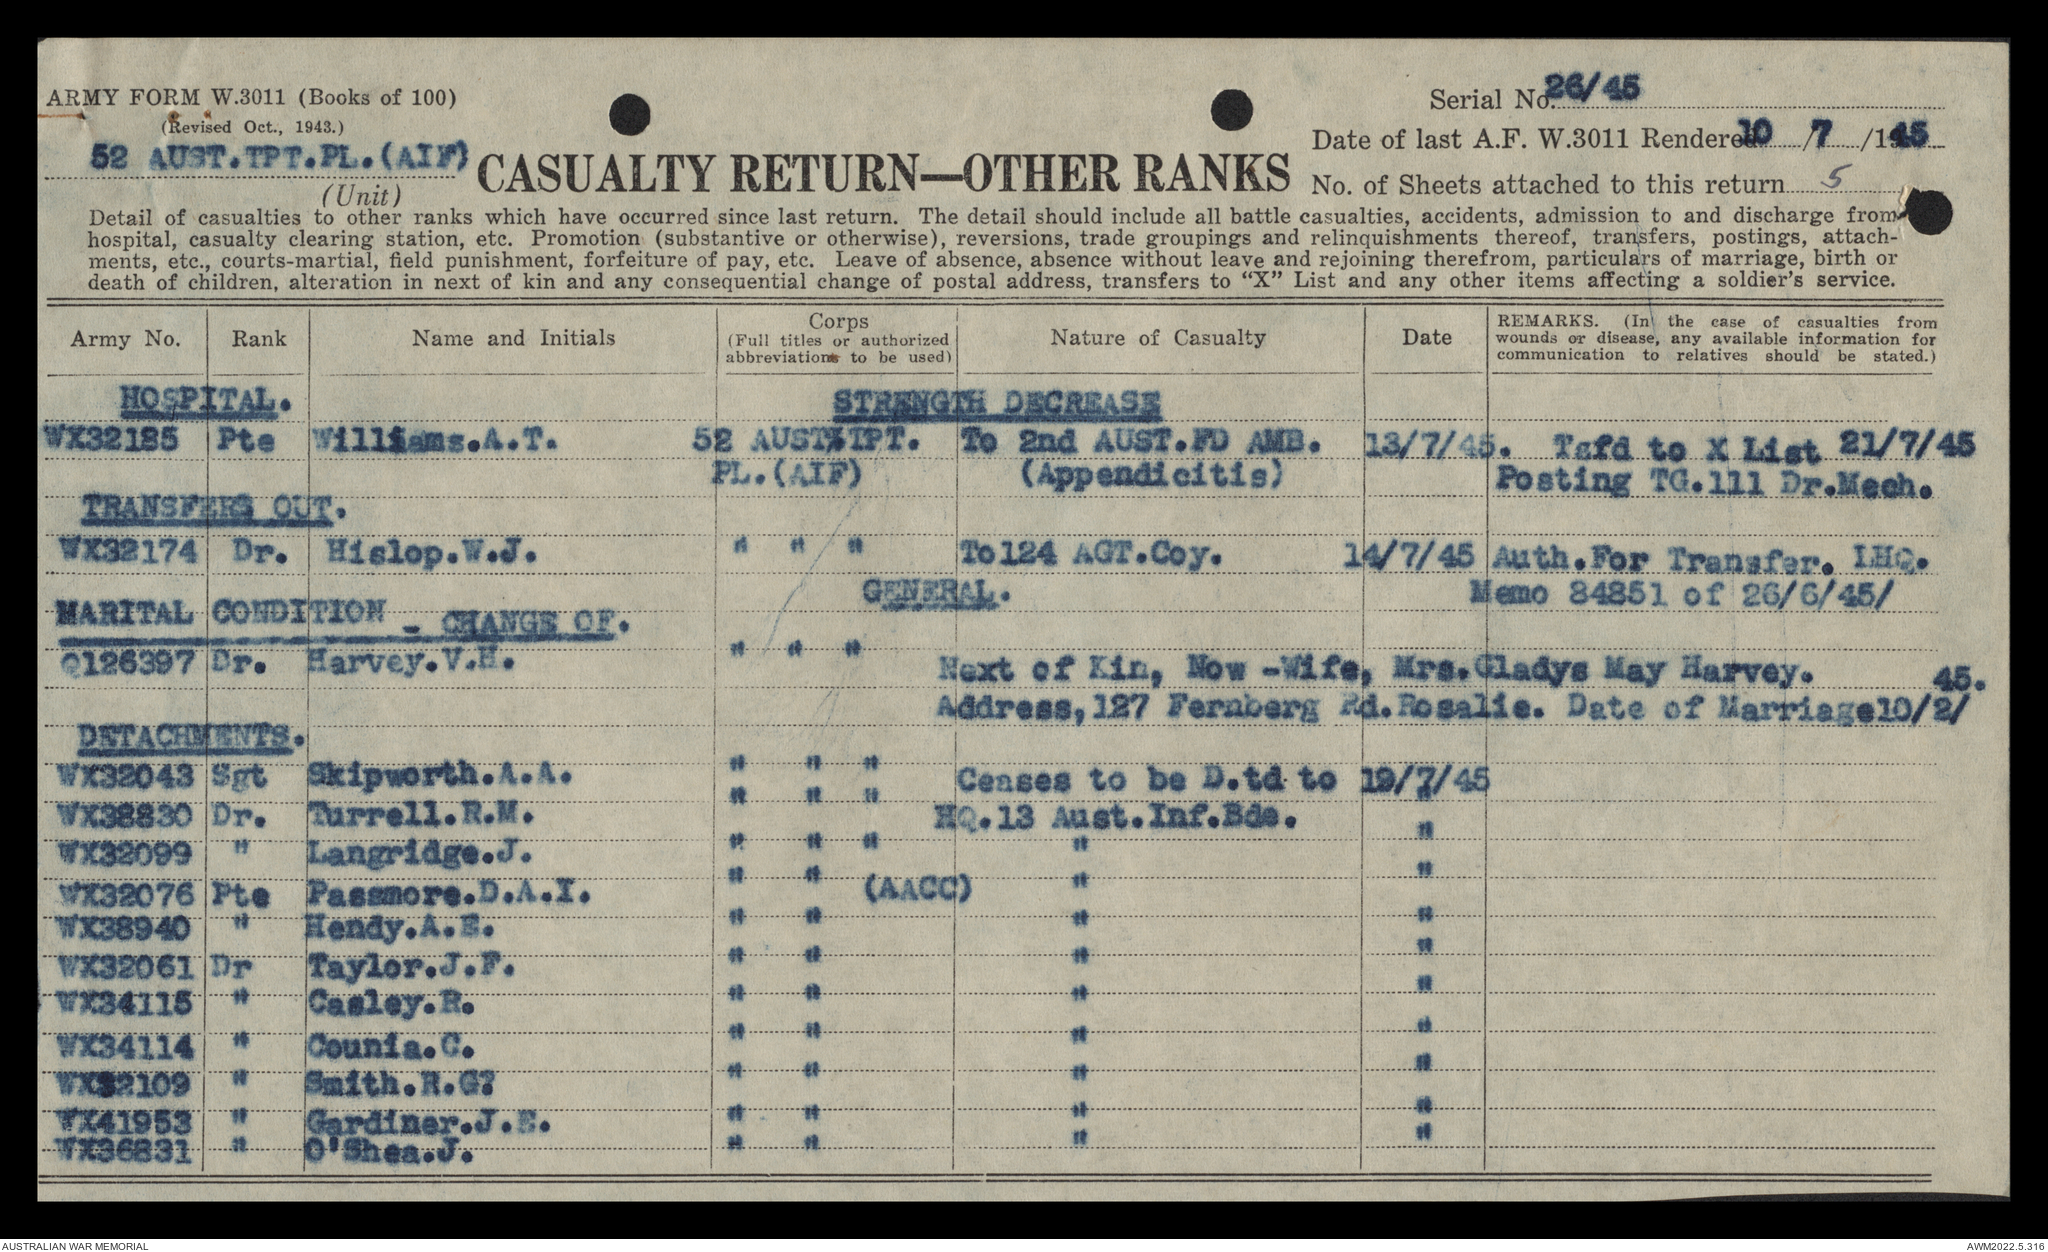 ARMY FORM W.3011 (Books of 100)
(Revised Oct., 1943.)
52 AUST.TPT.PL.(AIF)
(Unit)
CASUALTY RETURN—OTHER RANKS
Serial No. 26/45
Date of last A.F. W.3011 Rendered 10 / 7 /1945
No. of Sheets attached to this return 5
Detail of casualties to other ranks which have occurred since last return. The detail should include all battle casualties, accidents, admission to and discharge from
hospital, casualty clearing station, etc. Promotion (substantive or otherwise), reversions, trade groupings and relinquishments thereof, transfers, postings, attach-
ments, etc., courts-martial, field punishment, forfeiture of pay, etc. Leave of absence, absence without leave and rejoining therefrom, particulars of marriage, birth or
death of children, alteration in next of kin and any consequential change of postal address, transfers to "X" List and any other items affecting a soldier's service.
Army No. Rank Name and Initials Corps (Full titles or authorized abbreviations to be used) Nature of Casualty Date REMARKS. (In the case of casualties from wounds or disease, any available information for communication to relatives should be stated.)
HOSPITAL. STRENGTH DECREASE
WX32185 Pte Williams.A.T. 52 AUST.TPT. To 2nd AUST.FD AMB. 13/7/45. Tsfd to X List 21/7/45
PL.(AIF) (Appendicitis) Posting TG.111 Dr.Mech.
TRANSFERS OUT.
WX32174 Dr. Hislop.W.J. " " " To124 AGT.Coy. 14/7/45 Auth.For Transfer. LHQ.
GENERAL. Memo 84851 of 26/6/45/
MARITAL CONDITION - CHANGE OF.
Q126397 Dr. Harvey.V.H. " " " Next of Kin, Now -Wife, Mrs.Gladys May Harvey. 45.
Address,127 Fernberg Rd.Rosalie. Date of Marriage10/2/
DETACHMENTS.
WX32043 Sgt Skipworth.A.A. " " " Ceases to be D.td to 19/7/45
WX38830 Dr. Turrell.R.M. " " " HQ.13 Aust.Inf.Bde. "
WX32099 " Langridge.J. " " " " "
WX32076 Pte Passmore.D.A.I. " " (AACC) " "
WX38940 " Hendy.A.E. " " " "
WX32061 Dr Taylor.J.F. " " " "
WX34115 " Casley.R. " " " "
WX34114 " Counia.C. " " " "
WX32109 " Smith.R.G? " " " "
WX41953 " Gardiner.J.E. " " " "
WX36831 " O'Shea.J. " " " "
AUSTRALIAN WAR MEMORIAL
AWM2022.5.316